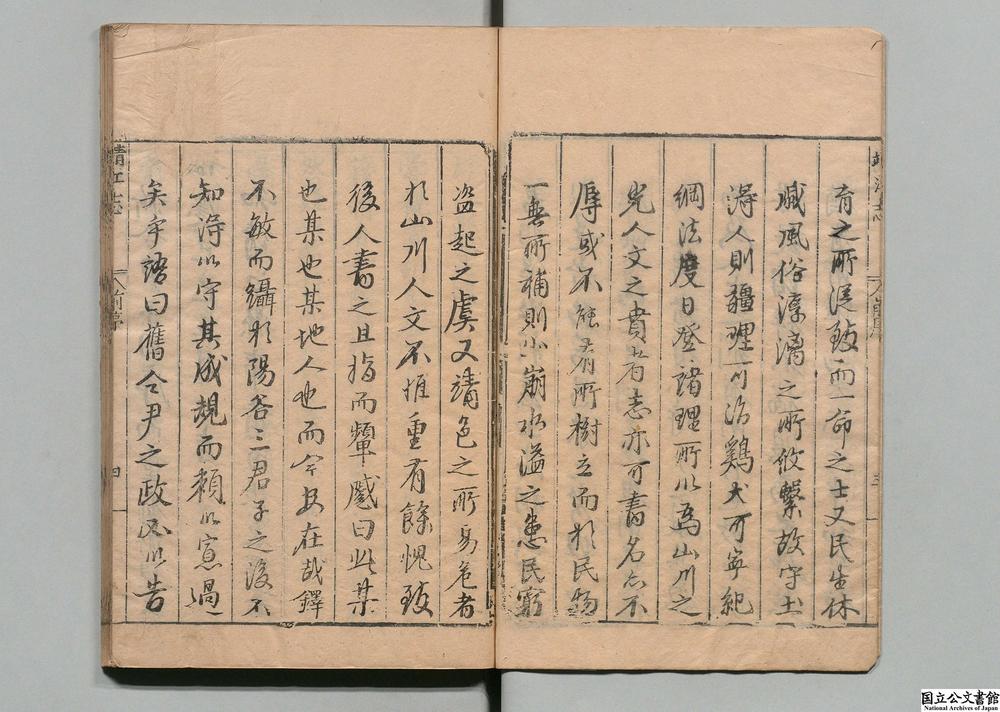 育之所從致而一命之士又民生休
戚風俗淳漓之所攸繫故守土
得人則疆理可治鷄犬可寧紀
綱法度日登諸理所以為山川之
光人文之貴者志亦可書名亦不
辱或不能有所樹立而於民物
一無所補則小崩水溢之患民窮
盗起之虞又靖邑之所易危者
於山川人文不惟重有餘愧致
後人書之且指而顰蹙曰此某
也某也某地人也而今安在哉鐸
不敏而躡於陽谷三君子之後不
知得以守其成規而賴以寡過
矣乎語曰舊令尹之政必以告
靖江志
前序
四
三
国立公文書館
National Archives of Japan